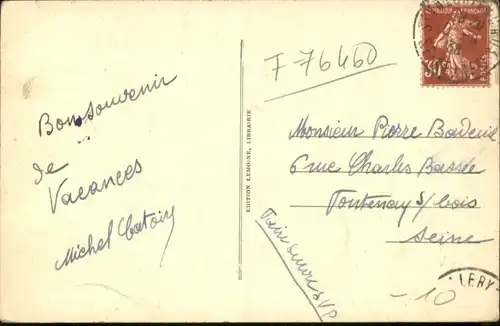 F 76460
Bon souvenir
de
Vacances
Michel
EDITION LEMOINE, LIBRAIRIE
Monsieur Pierre
6 rue Charles Bassée
Fontenay s/bois
Seine
Faire suivre SVP
REPUBLIQUE FRANÇAISE
LERY
-10